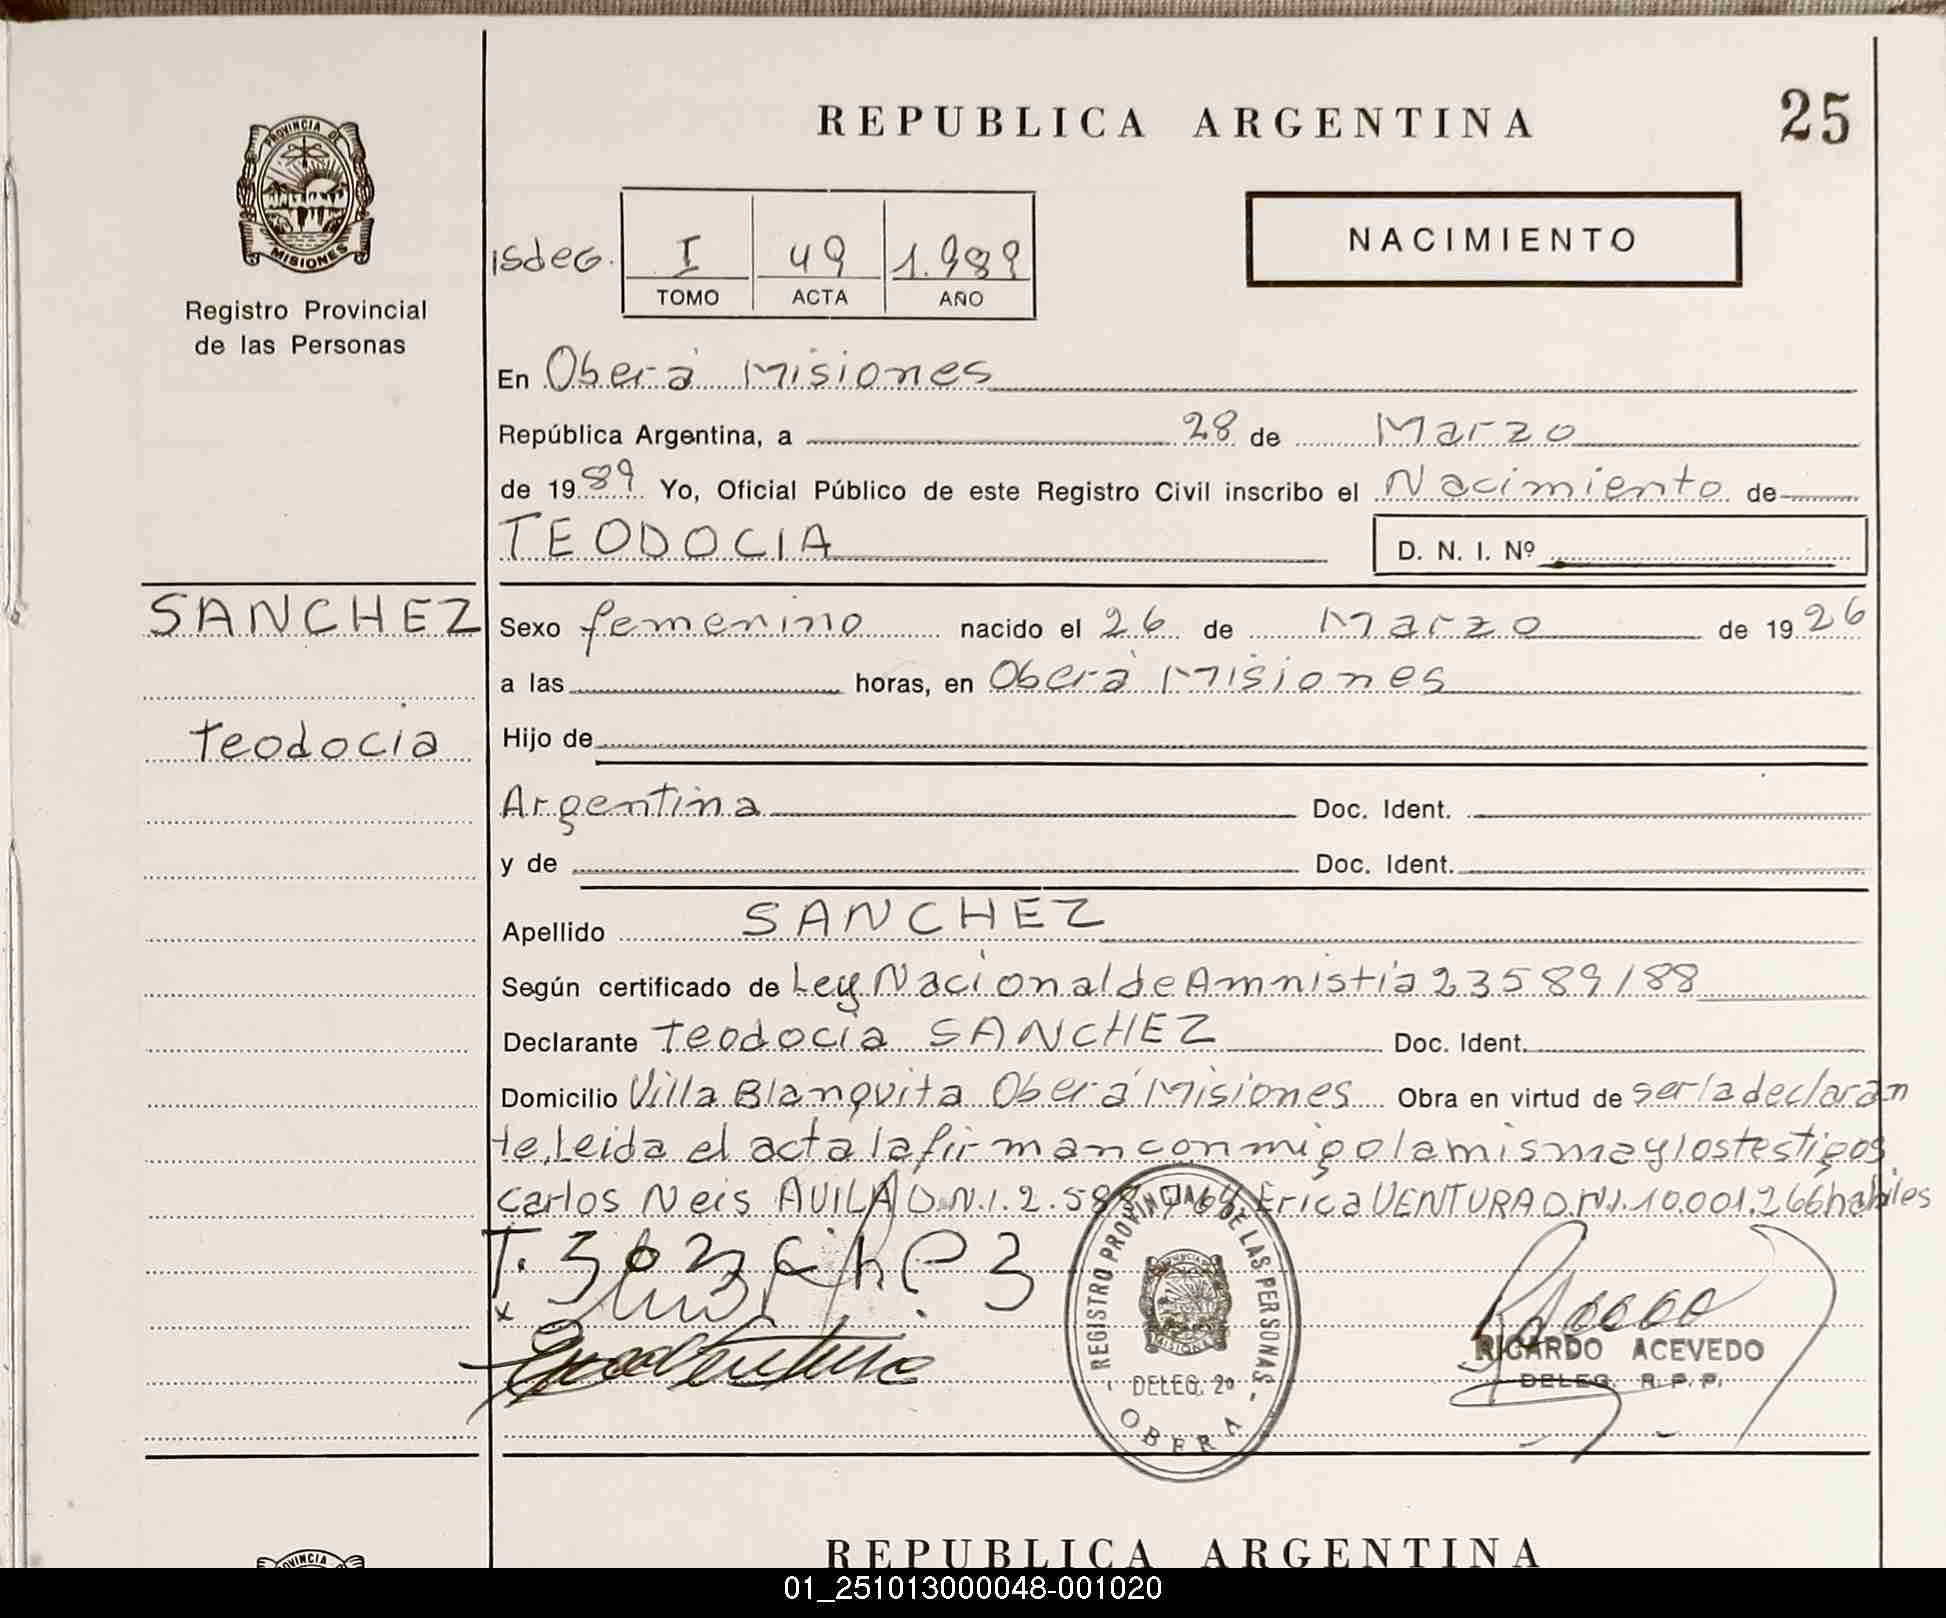 REPUBLICA ARGENTINA
25
PROVINCIA DE
MISIONES
Registro Provincial
de las Personas
NACIMIENTO
isdeg. I 49 1.989
TOMO ACTA AÑO
En Oberá Misiones
República Argentina, a 28 de Marzo
de 1989 Yo, Oficial Público de este Registro Civil inscribo el Nacimiento de
TEODOCIA
D. N. I. Nº
SANCHEZ
Teodocia
Sexo femenino nacido el 26 de Marzo de 1926
a las horas, en Oberá Misiones
Hijo de
Argentina Doc. Ident.
y de Doc. Ident.
Apellido SANCHEZ
Según certificado de Ley Nacional de Amnistía 23589/88
Declarante Teodocia SANCHEZ Doc. Ident.
Domicilio Villa Blanquita Oberá Misiones Obra en virtud de ser la declaran
te, Leida el acta la firman conmigo la misma y los testigos
Carlos Neis AVILA D.N.I. 2.588.768 Erica VENTURA D.N.I. 10.001.266 habiles
T. Sanchez
REGISTRO PROVINCIAL DE LAS PERSONAS
MISIONES
DELEG. 2º
OBERA
RICARDO ACEVEDO
DELEG. R. P. P.
REPUBLICA ARGENTINA
01_251013000048-001020